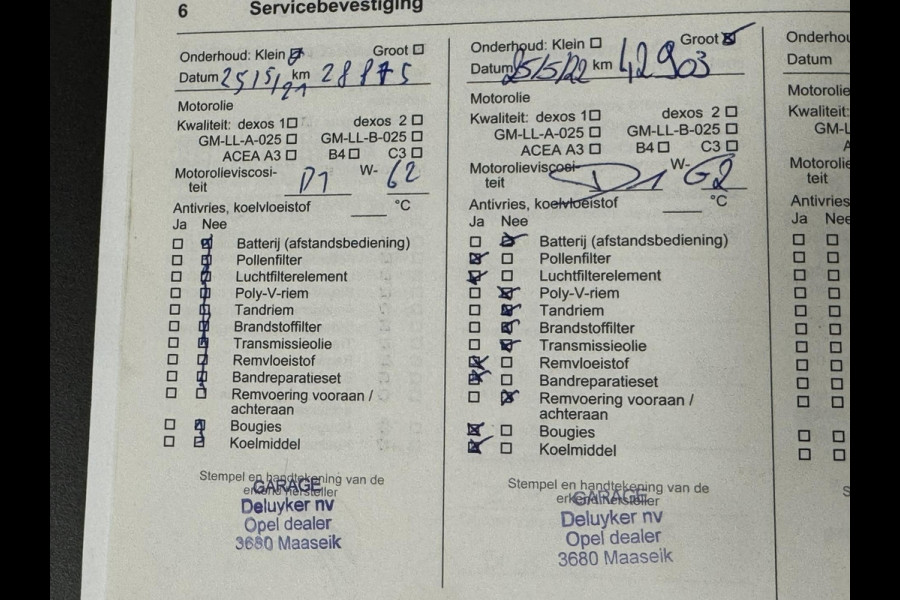 6 Servicebevestiging
Onderhoud: Klein ☑ Groot ☐
Datum 25/5/21 km 28875
Motorolie
Kwaliteit: dexos 1 ☐ dexos 2 ☐
GM-LL-A-025 ☐ GM-LL-B-025 ☐
ACEA A3 ☐ B4 ☐ C3 ☐
Motorolieviscosi-
teit D1 W- G2
Antivries, koelvloeistof ____ °C
Ja Nee
☐ ☑ Batterij (afstandsbediening)
☐ ☑ Pollenfilter
☐ ☑ Luchtfilterelement
☐ ☑ Poly-V-riem
☐ ☑ Tandriem
☐ ☑ Brandstoffilter
☐ ☑ Transmissieolie
☐ ☑ Remvloeistof
☐ ☑ Bandreparatieset
☐ ☑ Remvoering vooraan /
achteraan
☐ ☑ Bougies
☐ ☑ Koelmiddel
Stempel en handtekening van de
erkend hersteller
GARAGE
Deluyker nv
Opel dealer
3680 Maaseik
Onderhoud: Klein ☐ Groot ☒
Datum 25/5/22 km 42903
Motorolie
Kwaliteit: dexos 1 ☐ dexos 2 ☐
GM-LL-A-025 ☐ GM-LL-B-025 ☐
ACEA A3 ☐ B4 ☐ C3 ☐
Motorolieviscosi-
teit D1 W- G2
Antivries, koelvloeistof ____ °C
Ja Nee
☐ ☒ Batterij (afstandsbediening)
☒ ☐ Pollenfilter
☒ ☐ Luchtfilterelement
☐ ☒ Poly-V-riem
☐ ☒ Tandriem
☐ ☒ Brandstoffilter
☐ ☒ Transmissieolie
☒ ☐ Remvloeistof
☒ ☐ Bandreparatieset
☐ ☒ Remvoering vooraan /
achteraan
☒ ☐ Bougies
☒ ☐ Koelmiddel
Stempel en handtekening van de
erkend hersteller
GARAGE
Deluyker nv
Opel dealer
3680 Maaseik
Onderhou
Datum
Motorolie
Kwaliteit:
GM-L
A
Motorolie
teit
Antivries
Ja Nee
☐ ☐
☐ ☐
☐ ☐
☐ ☐
☐ ☐
☐ ☐
☐ ☐
☐ ☐
☐ ☐
☐ ☐
☐ ☐
☐ ☐
S